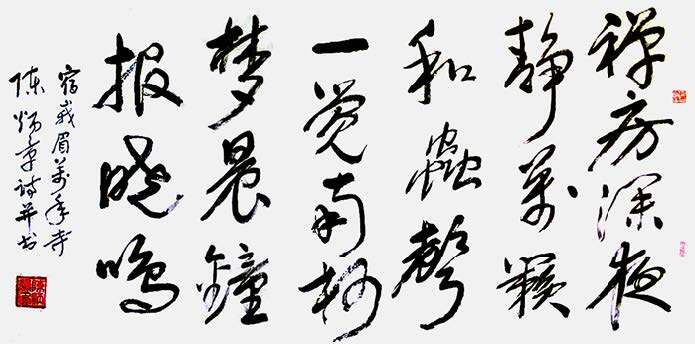 禅房深夜
静万籁
和蟲聲
一觉南柯
梦晨鐘
报晓鸣
宿峨眉萬年寺
陈炳章诗并书